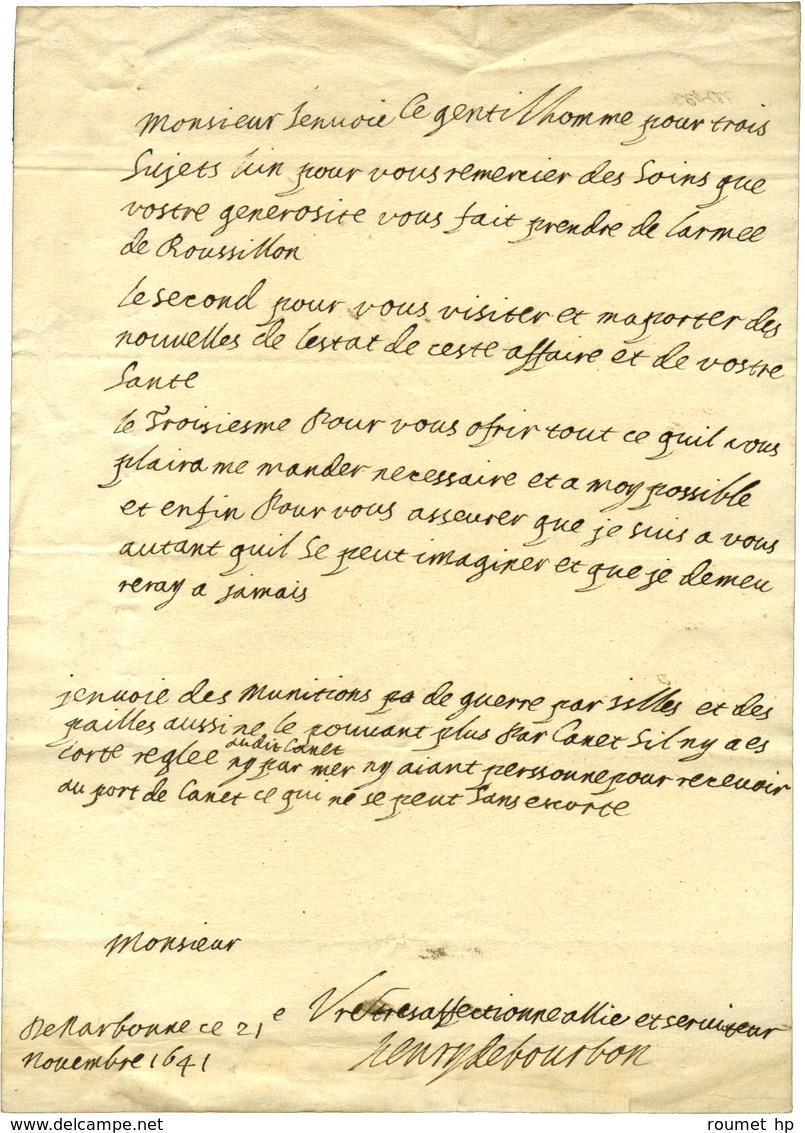 Monsieur Jenvoie ce gentilhomme pour trois
Sujets lun pour vous remercier des Soins que
vostre generosite vous fait prendre de larmee
de Roussillon
le second pour vous visiter et maporter des
nouvelles de lestat de ceste affaire et de vostre
Sante
le Troisiesme Pour vous ofrir tout ce quil vous
plaira me mander necessaire et a moy possible
et enfin Pour vous asseurer que je suis a vous
autant quil Se peut imaginer et que je demeu
reray a jamais
jenvoie des Munitions de guerre par silles et des
pailles aussi ne le pouvant plus Par Canet Sil ny a es
corte reglee ny par mer ny aiant perssonne pour recevoir
audit Canet
au port de Canet ce qui ne se peut Sans escorte
Monsieur
Vre tresaffectionne allie et serviteur
henry de bourbon
De Narbonne ce 21e
Novembre 1641
roumet hp